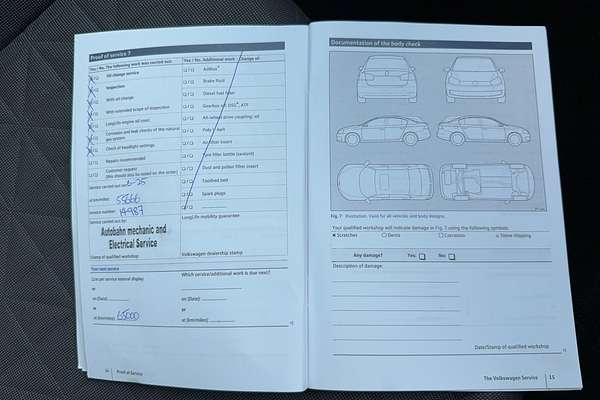 Proof of service 7
Yes / No. The following work was carried out:
Oil change service
Inspection
With oil change
With extended scope of inspection
LongLife engine oil used
Corrosion and leak checks of the natural
gas system
Check of headlight settings
Repairs recommended
Customer request
(this should also be based on the order)
Service carried out on:
at km/miles: 55666
Service number: 14987
Service carried out by:
Autobahn mechanic and
Electrical Service
Stamp of qualified workshop
Yes / No. Additional work | Change of:
AdBlue®
Brake fluid
Diesel fuel filter
Gearbox oil: DSG®, ATF
All-wheel drive coupling: oil
Poly V-belt
Air filter insert
Tyre filler bottle (sealant)
Dust and pollen filter insert
Toothed belt
Spark plugs
LongLife mobility guarantee
Volkswagen dealership stamp
Your next service
Like per service interval display:
or
on (Date):
or
at (km/miles): 65000
Which service/additional work is due next?
on (Date):
or
at (km/miles):
Proof of Service
Documentation of the body check
Fig. 7 Illustration. Valid for all vehicles and body designs.
Your qualified workshop will indicate damage in Fig. 7 using the following symbols:
Scratches
Dents
Corrosion
Stone chipping
Any damage? Yes: No:
Description of damage:
Date/Stamp of qualified workshop
The Volkswagen Service 15